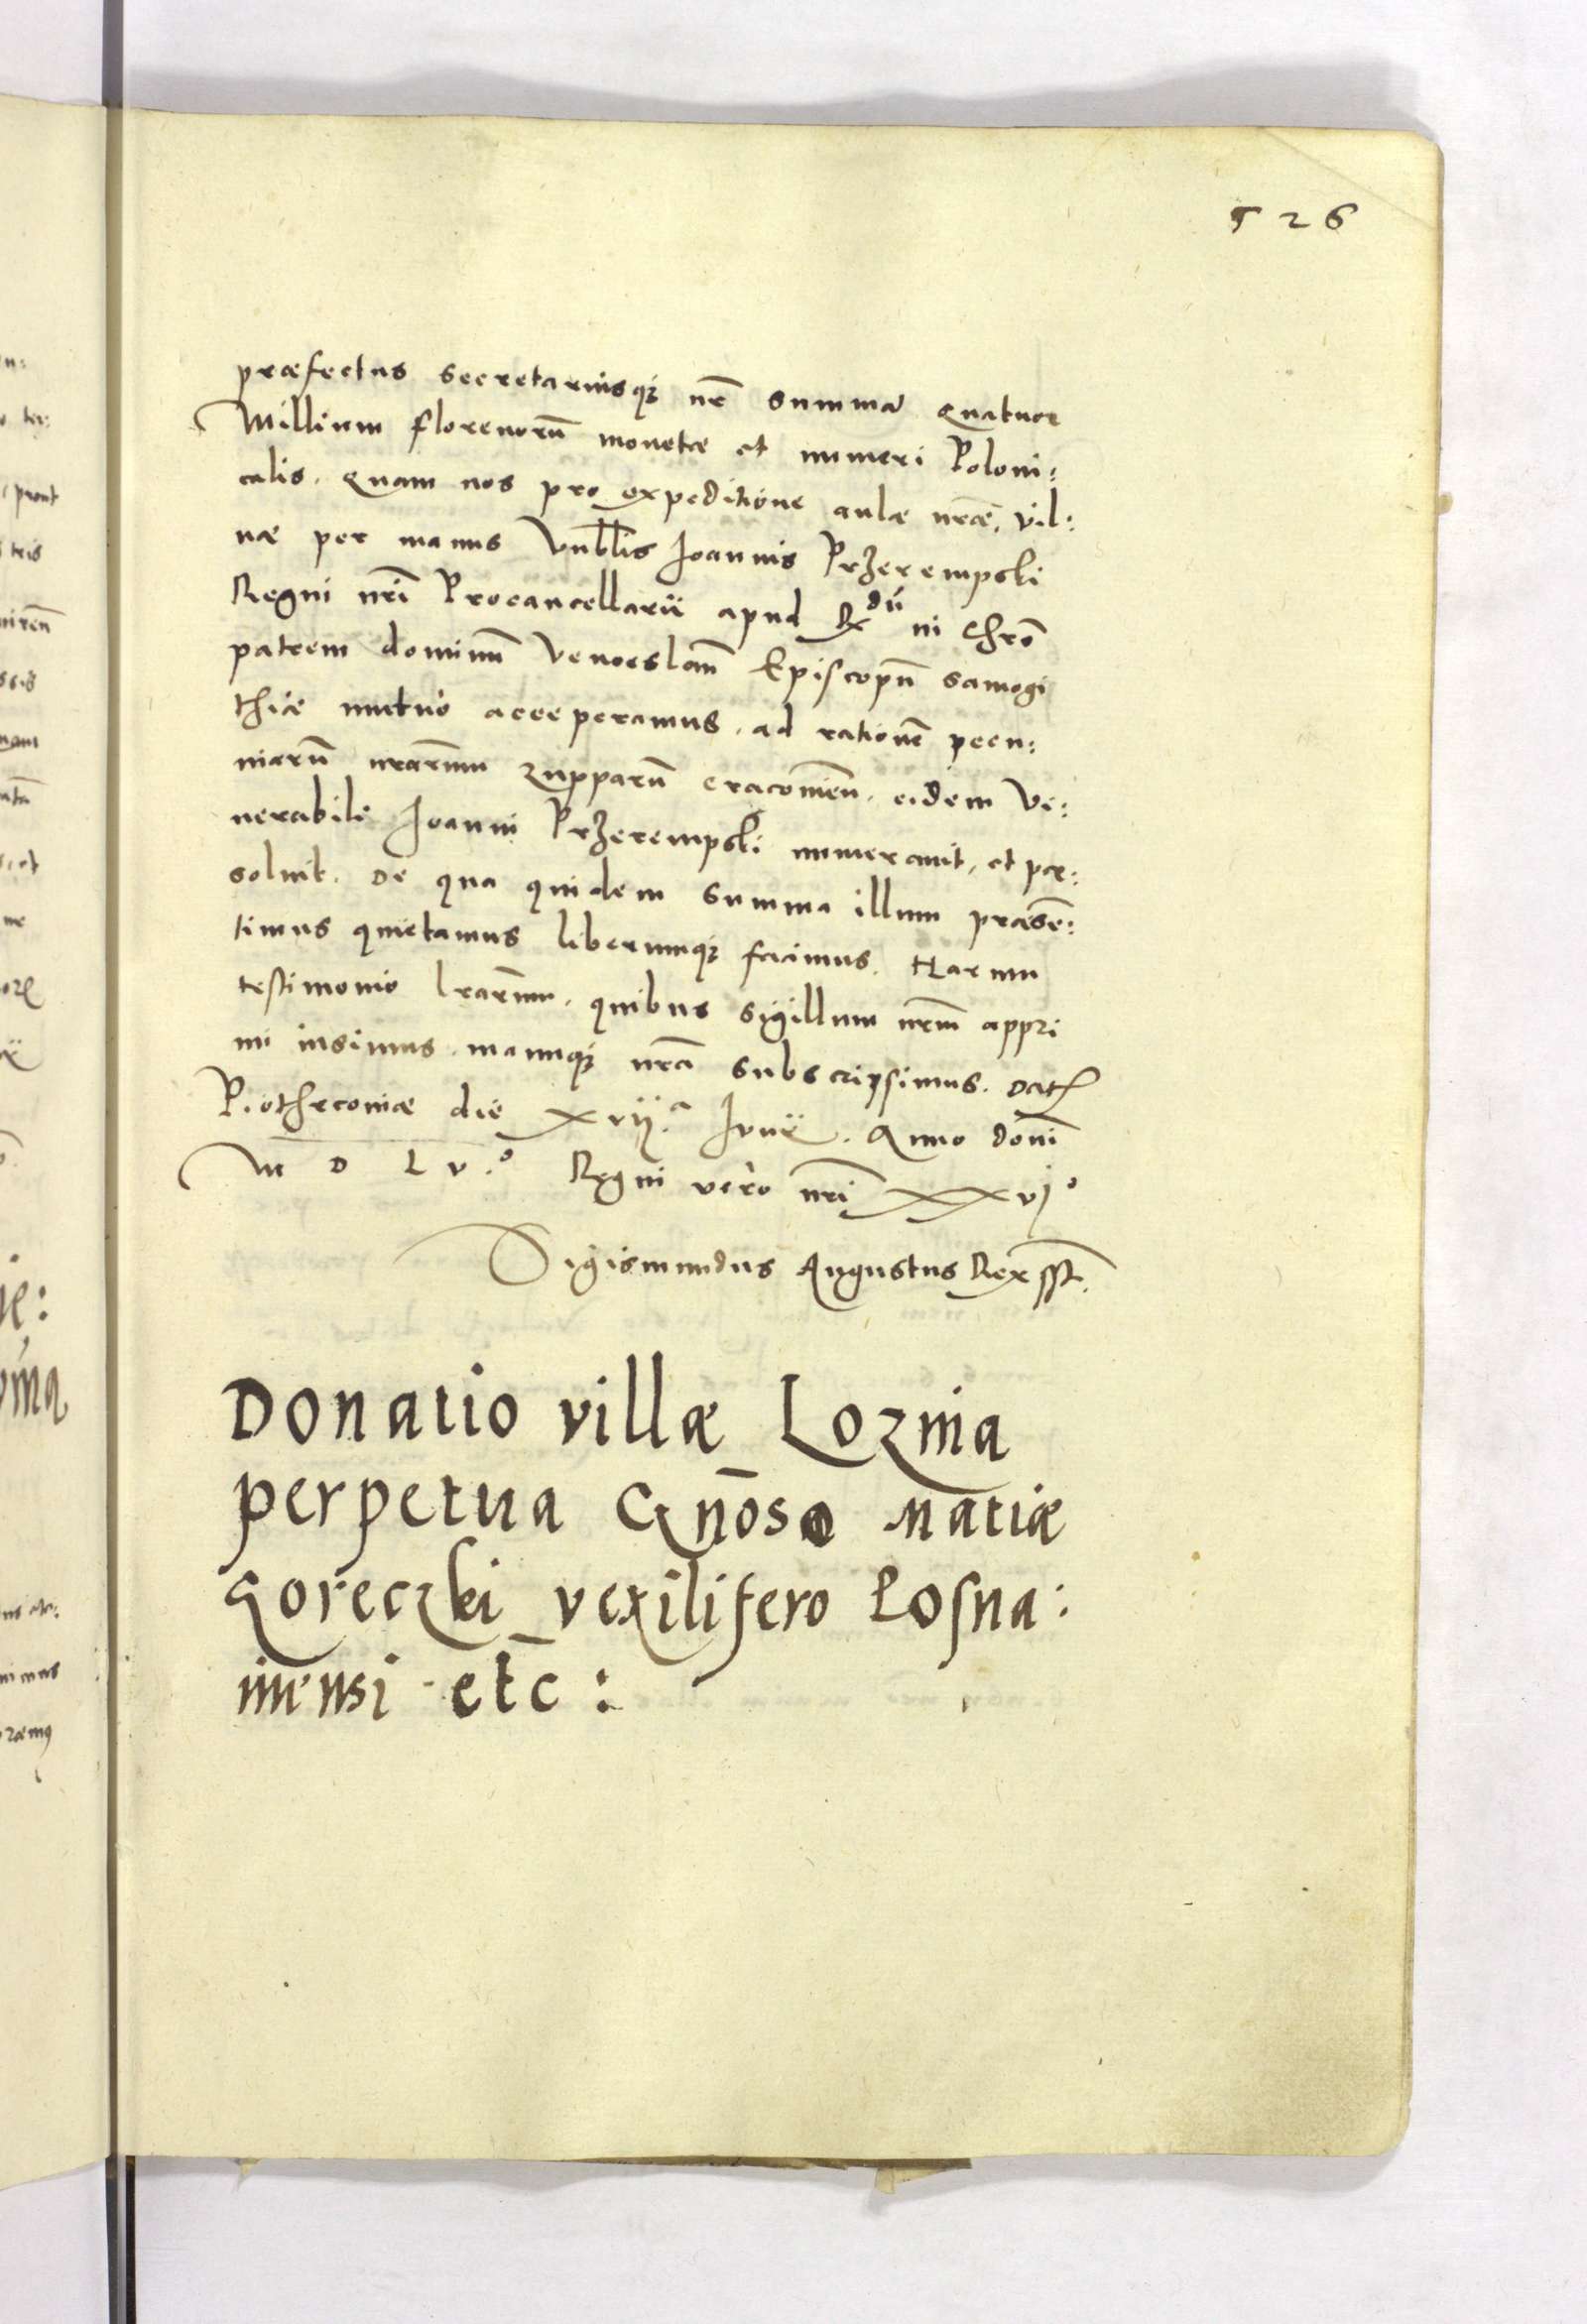 526
præfectus secretariusq; nr̄ summā quatuor
Millium florenorū monetæ et numeri Poloni:
calis. quam nos pro expeditione aulæ nr̄æ, Vil:
næ per manus Vnblīs Joannis Przerempski
Regni nrī Procancellarii apud Rdū in Chrō
patrem dominū Venceslaū Episcopū Samogi
thiæ mutuo acceperamus. ad rationē pecu:
niarū nr̄arum zupparū cracovieñ. eidem Ve:
nerabili Joanni Przerempski numeravit, et per:
solvit. De qua quidem summa illum præsē:
timus quietamus liberumq; facimus. Harum
testimonio l̄rarum. quibus sigillum nr̄m appri
mi iusimus manuq; nr̄a subscripsimus. Dat
Piotrcoviæ die xvii.a Junii. Anno domi
M D L V.o Regni vero nrī xxvio
Sigismundus Augustus Rex sst.
Donatio villæ Lozinia
perpetua Gnōso Matiæ
Goreczki vexilifero Posna:
niensi et̄c: